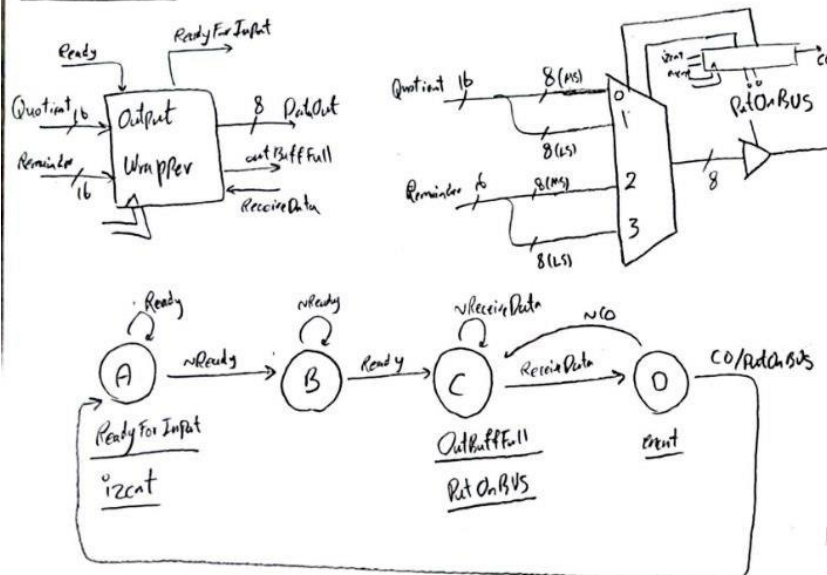 Ready
ReadyForInput
Quotient 16
Remainder 16
Output
Wrapper
8 DataOut
outBuffFull
ReceiveData
Quotient 16
8(MS)
8(LS)
Remainder 16
8(MS)
8(LS)
0
1
2
3
izcnt
encnt
CO
PutOnBUS
8
Ready
~Ready
~ReceiveData
~CO
A
~Ready
B
Ready
C
ReceiveData
D
CO/PutOnBUS
ReadyForInput
izcnt
OutBuffFull
PutOnBUS
encnt